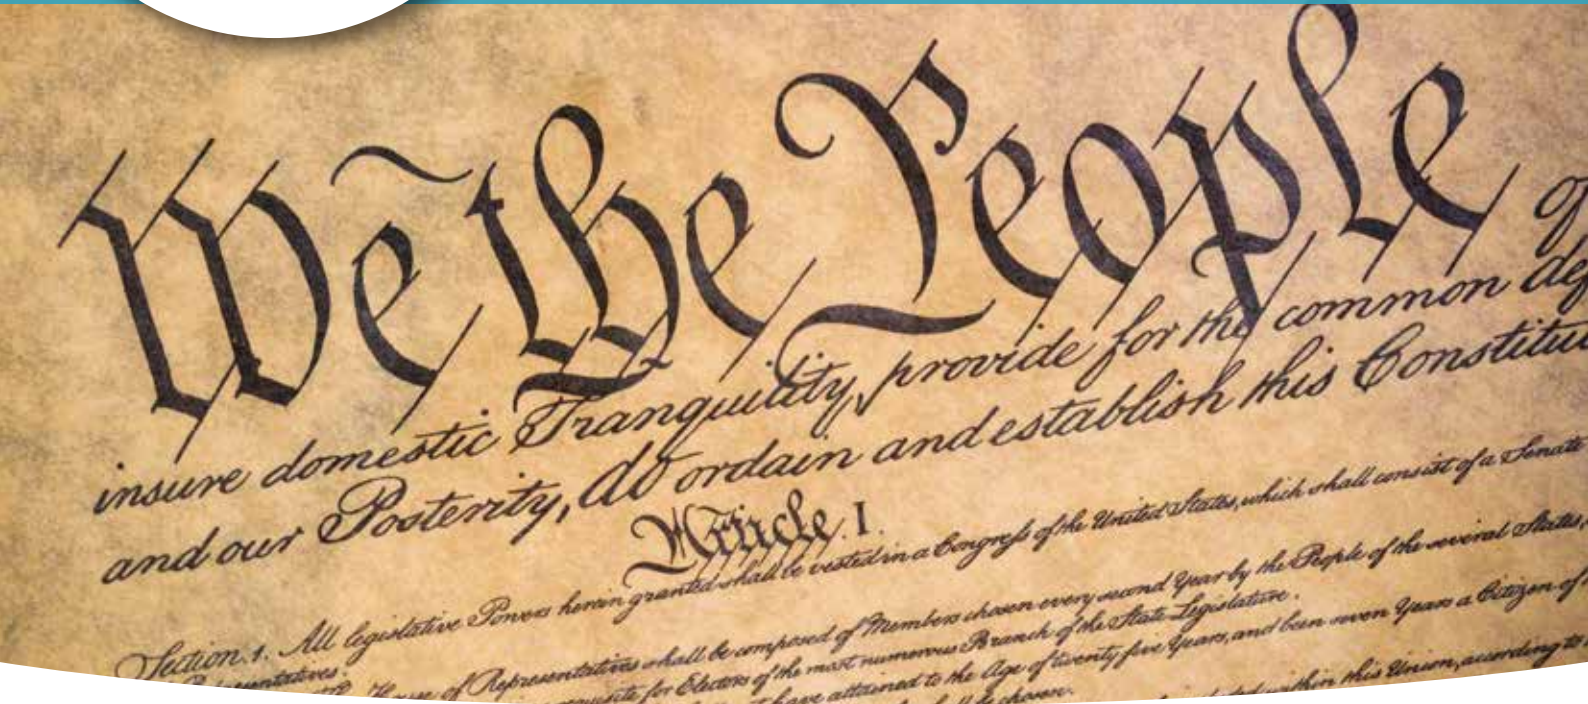 We the People of
insure domestic Tranquility, provide for the common def
and our Posterity, do ordain and establish this Constitu
Article. I.
Section. 1. All legislative Powers herein granted shall be vested in a Congress of the United States, which shall consist of a Senate
Representatives.
House of Representatives shall be composed of Members chosen every second Year by the People of the several States,
requisite for Electors of the most numerous Branch of the State Legislature.
have attained to the Age of twenty five Years, and been seven Years a Citizen of
be chosen.
within this Union, according to